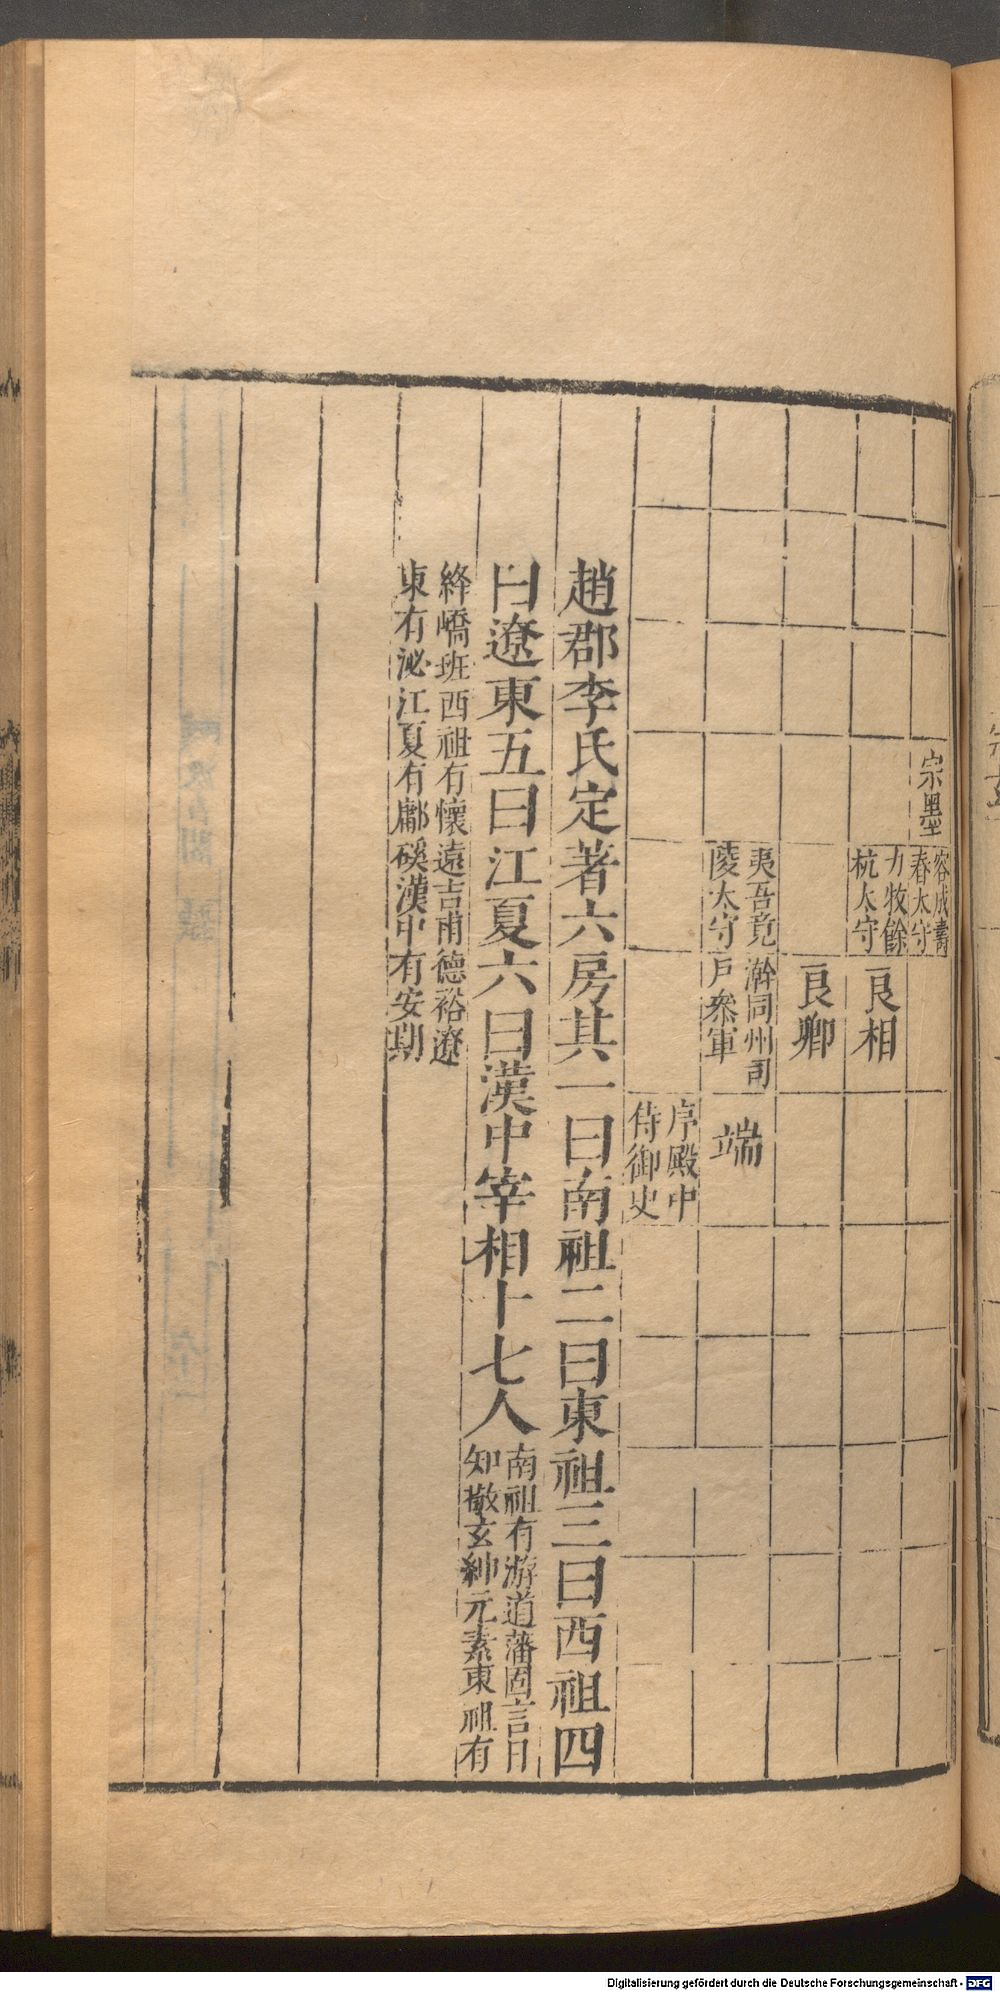 宗墨
容成壽
春太守
力牧餘
杭太守
良相
良卿
夷吾竟
陵太守
澣同州司
戶叅軍
端
序殿中
侍御史
趙郡李氏定著六房其一曰南祖二曰東祖三曰西祖四
曰遼東五曰江夏六曰漢中宰相十七人
南祖有游道藩固言日
知敬玄紳元素東祖有
絳嶠珏西祖有懷遠吉甫德裕遼
東有泌江夏有鄘磎漢中有安期
Digitalisierung gefördert durch die Deutsche Forschungsgemeinschaft - DFG